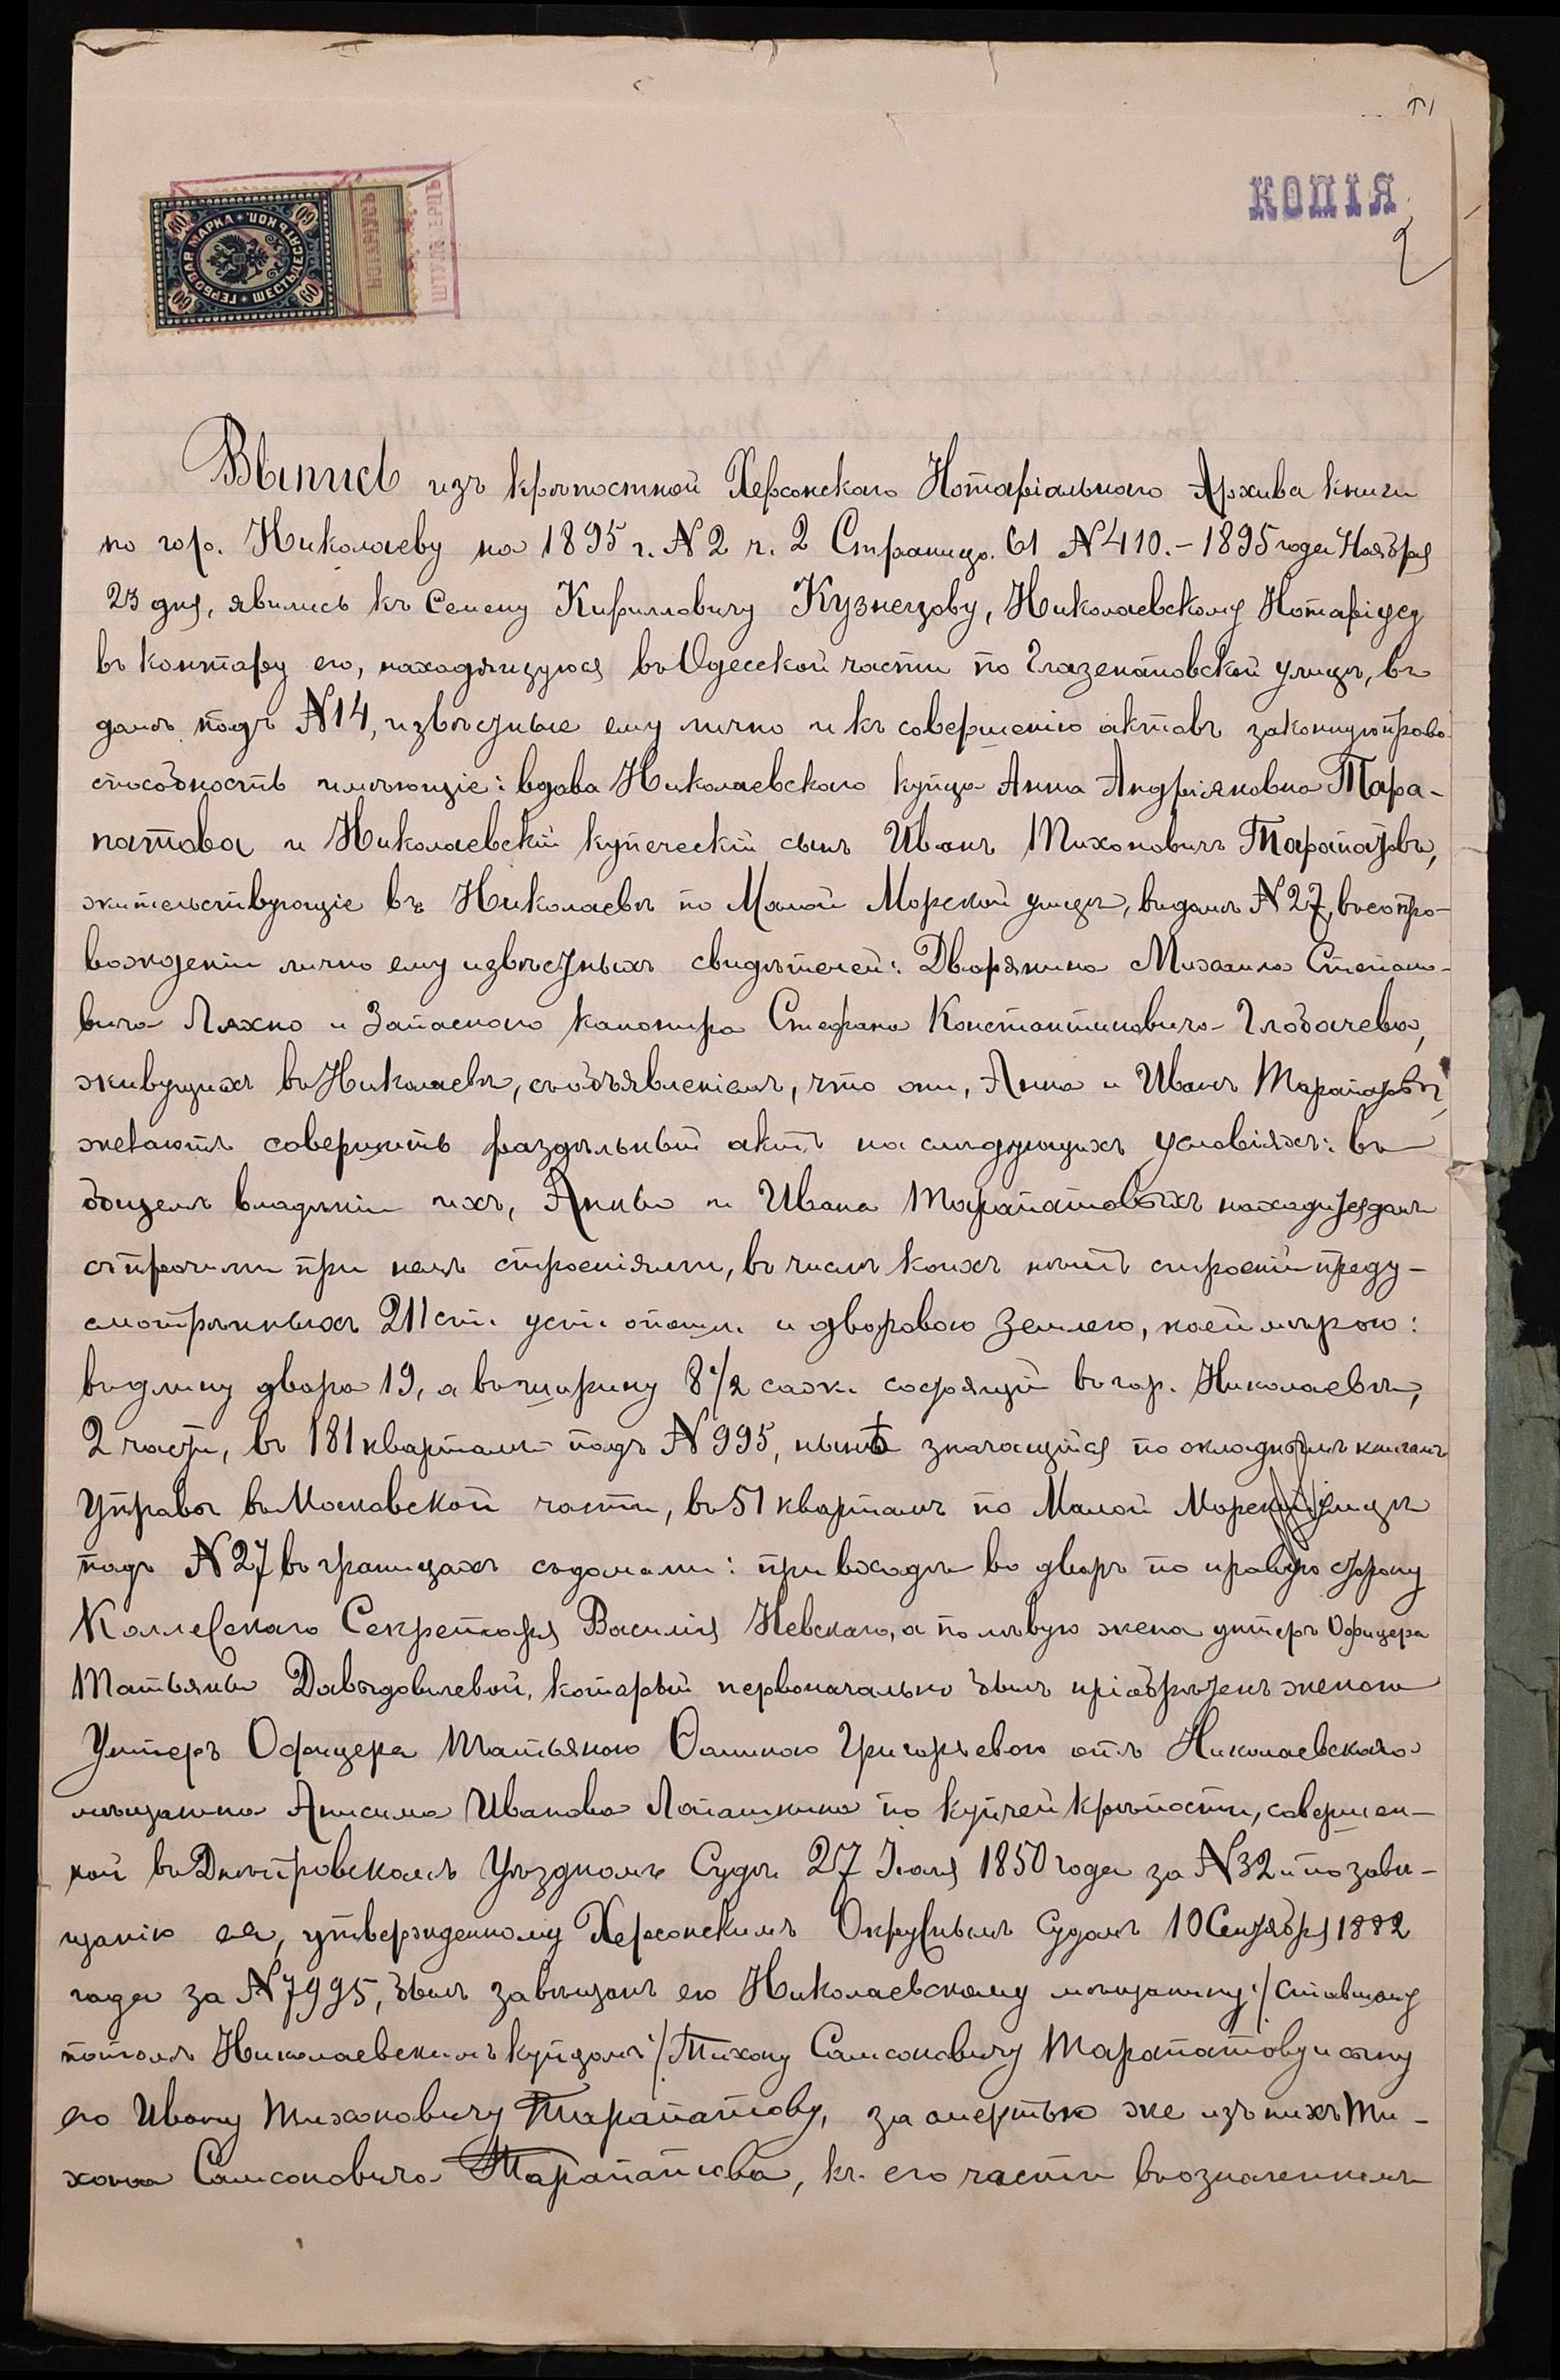 КОПІЯ
2
ГЕРБОВАЯ МАРКА
ШЕСТЬДЕСЯТЪ КОП.
60 60 60 60
НОТАРІУСЪ
Выпись изъ крѣпостной Херсонскаго Нотаріальнаго Архива книги
по гор. Николаеву на 1895 г. N 2 ч. 2 Страница. 61 N 410.- 1895 года Ноября
23 дня, явились къ Семену Кирилловичу Кузнецову, Николаевскому Нотаріусу
въ контору его, находящуюся въ Одесской части по Глазенаповской улицѣ, въ
домѣ подъ N 14, извѣстные ему лично и къ совершенію актовъ законную право-
способность имѣющіе: вдова Николаевскаго купца Анна Андріяновна Тара-
патова и Николаевскій купеческій сынъ Иванъ Тихоновичъ Тарапатовъ,
жительствующіе въ Николаевѣ по Малой Морской улицѣ, въ домѣ N 27, въ сопро-
вожденіи лично ему извѣстныхъ свидѣтелей: Дворянина Михаила Степано-
вича Ляхно и Запаснаго канонира Стефана Константиновича Глобачева,
живущихъ въ Николаевѣ, съ объявленіемъ, что они, Анна и Иванъ Тарапатовы,
желаютъ совершить раздѣльный актъ на слѣдующихъ условіяхъ: въ
общемъ владѣніи ихъ, Анны и Ивана Тарапатовыхъ находится домъ
съ прочими при немъ строеніями, въ числѣ коихъ нѣтъ строеній преду-
смотрѣнныхъ 211 ст. уст. о пошл. и дворовою землею, коей мѣрою:
въ длину двора 19, а въ ширину 8 1/2 саж. состоящій въ гор. Николаевѣ,
2 части, въ 181 кварталѣ подъ N 995, нынѣ значащійся по окладнымъ книгамъ
Управы въ Московской части, въ 51 кварталѣ по Малой Морской улицѣ
подъ N 27 въ границахъ съ домами: при входѣ во дворъ по правую сторону
Коллежскаго Секретаря Василія Невскаго, а по лѣвую жена унтеръ Офицера
Татьяны Давыдовичевой, который первоначально былъ пріобрѣтенъ женою
Унтеръ Офицера Татьяною Ѳоминою Григорьевою отъ Николаевскаго
мѣщанина Анисима Иванова Лапашкина по купчей крѣпости, совершен-
ной въ Днѣпровскомъ Уѣздномъ Судѣ 27 Іюля 1850 года за N 32 и по завѣ-
щанію ея, утвержденному Херсонскимъ Окружнымъ Судомъ 10 Сентября 1882
года за N 7995, былъ завѣщанъ ею Николаевскому мѣщанину :/ ставшему
потомъ Николаевскимъ купцомъ :/ Тихону Самсоновичу Тарапатову и сыну
его Ивану Тихоновичу Тарапатову, за смертью же изъ нихъ Ти-
хона Самсоновича Тарапатова, къ его части въ означенномъ